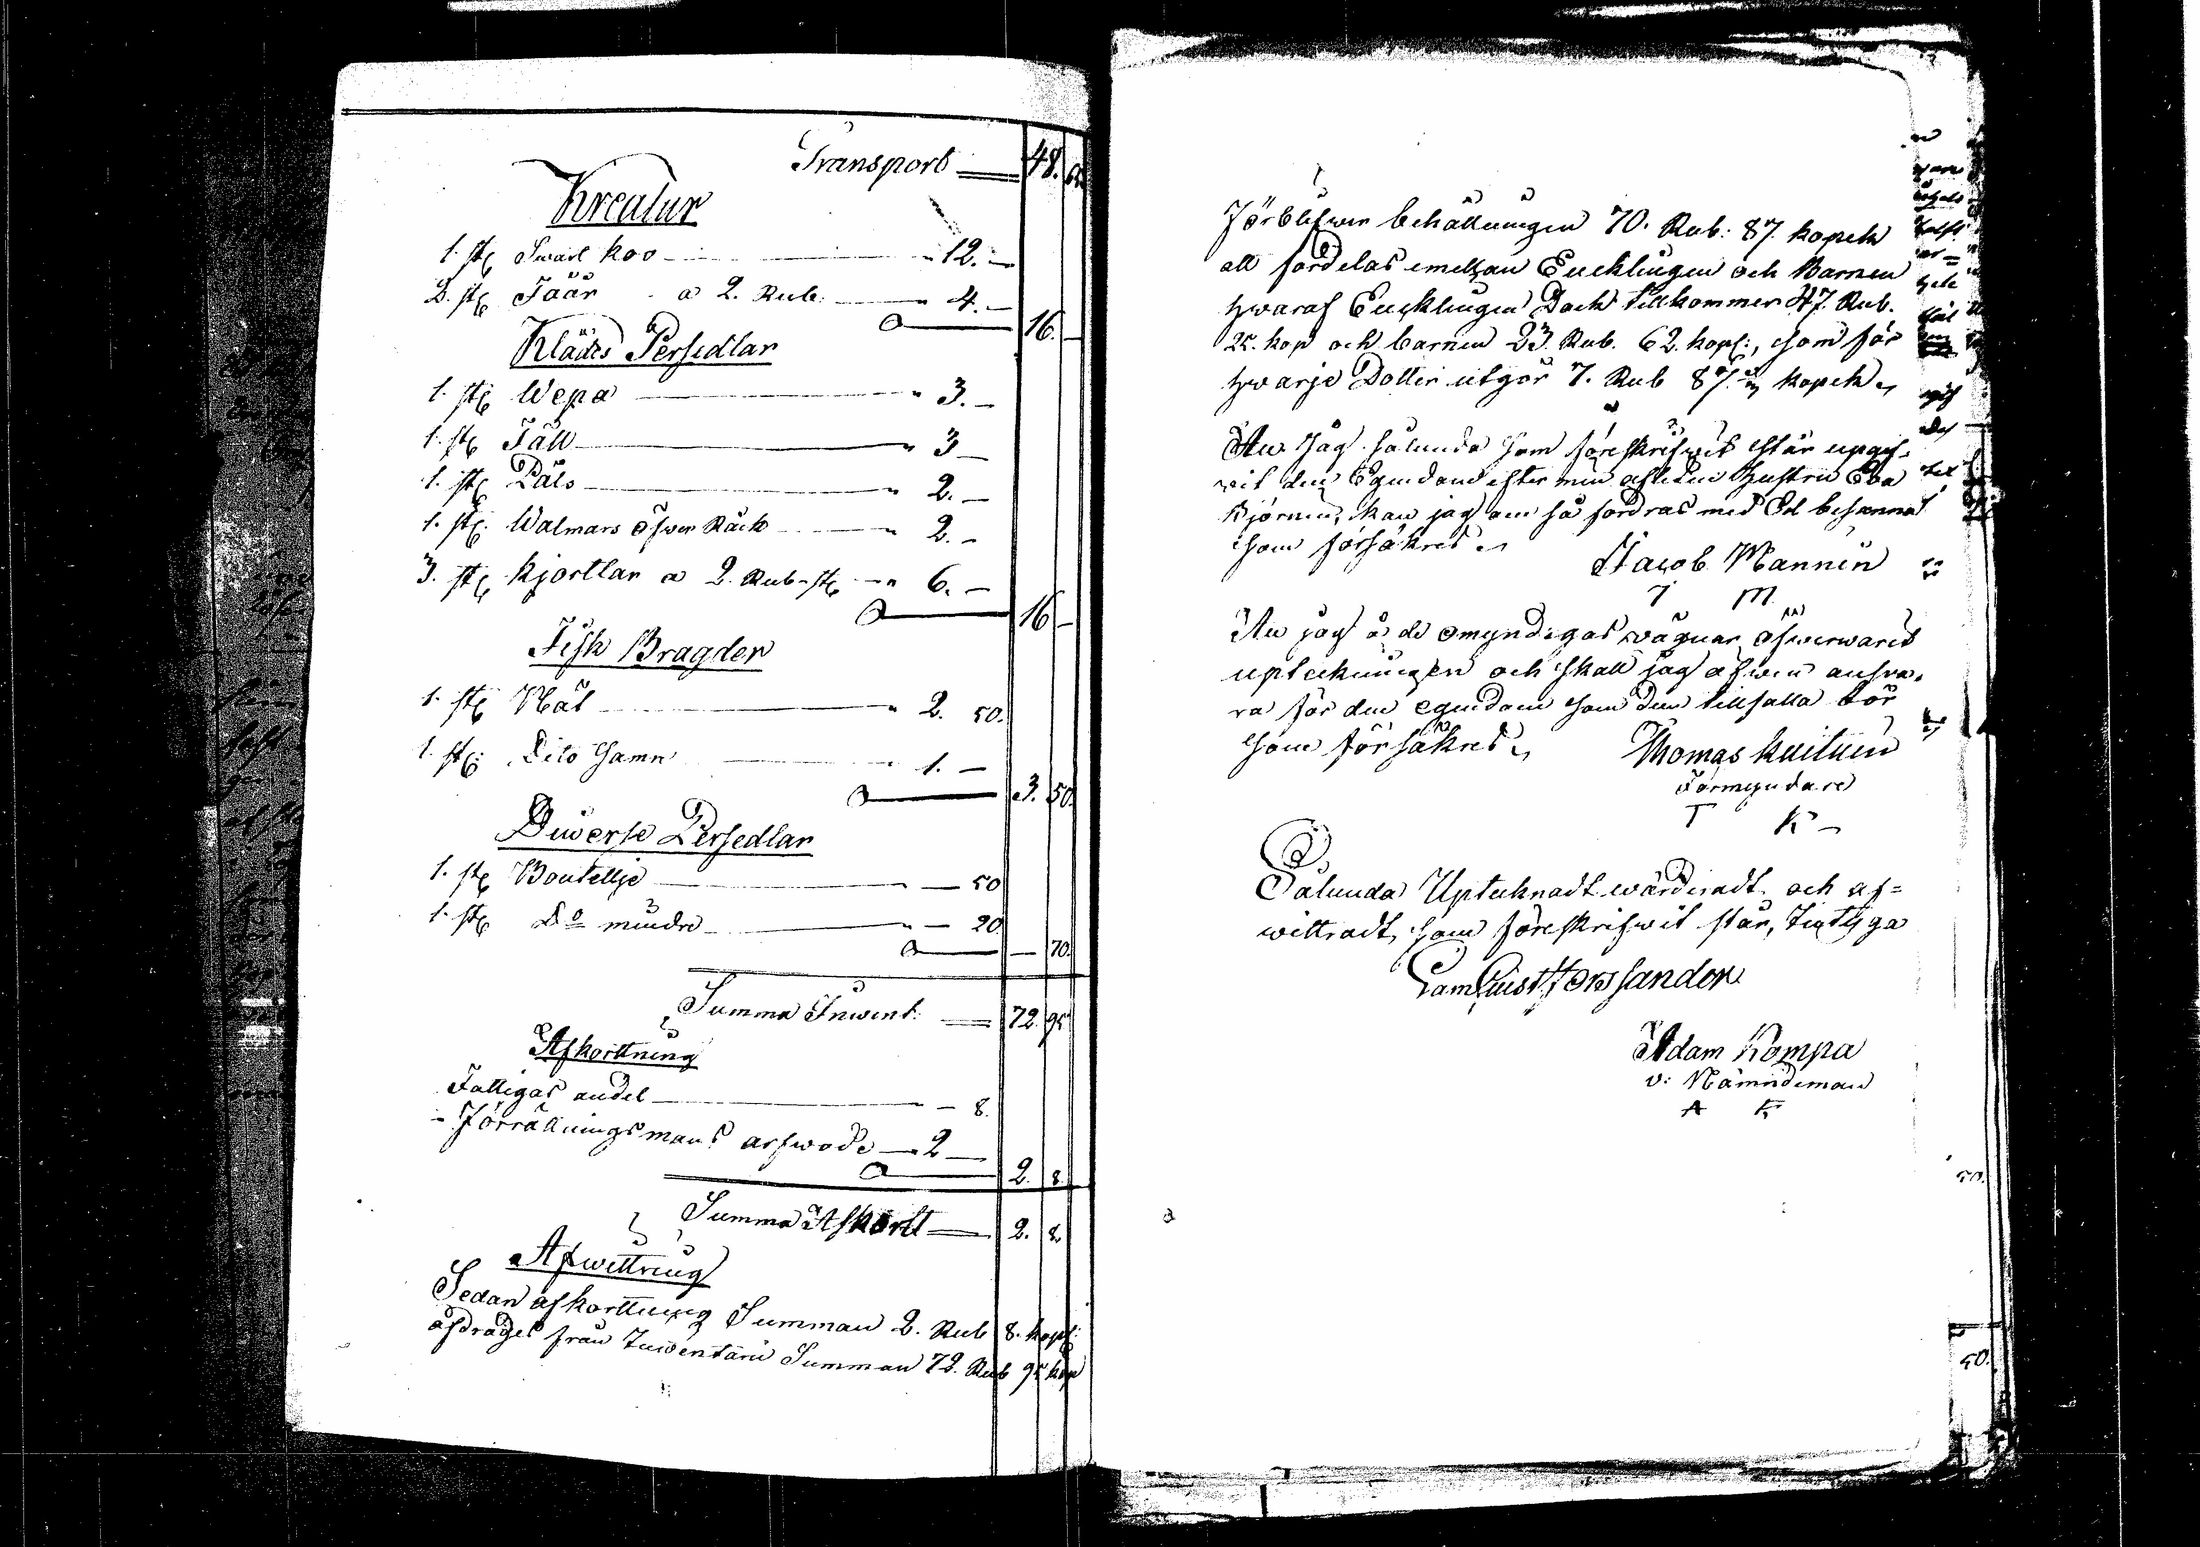 Transport 48.
Kreatur
1. st. Swart koo " 12. —
2. st. Fåår a 2. Rub. " 4. —
16. —
Klädes Persedlar
1. st. Wepa " 3. —
1. st. Fäll " 3 —
1. st. Päls " 2. —
1. st. Walmars öfwer Råck " 2. —
3. st. kjortlar a 2. Rub st. " 6. —
16 —
Fisk Bragder
1. st. Nät " 2. 50.
1. st. Dito Samn " 1. —
3. 50.
Diwerse Persedlar
1. st. Boutellje " — 50
1. st. Do mindre " — 20
— 70.
Summa Inwent. 72. 95
Afkorttning
Fattigas andel — 8.
" Förrättningsmans arfwode — 2 —
2. 8.
Summa Afkortt 2. 8.
Afwittring
Sedan afkorttning Summan 2. Rub 8. kop.
afdragit från Inwentarii Summan 72. Rub 95 kop
Förblifwer behållningen 70. Rub. 87. kopek
att fördelas emellan Encklingen och Barnen
hwaraf Encklingen Dock tillkommer 47. Rub.
25. kop och barnen 23. Rub. 62. kop., som för
hwarje Dotter utgör 7. Rub 87 kopek
At Jag sålunda som föreskrifwit står upgif-
wit den Egendom efter min aflidne Hustru Eva
Björnin, kan jag om så fordras med Ed besanna
som försäkras.
Jacob Mannin
I M
At jag å de omyndigas wägnar öfwerwarit
upteckningen och skall jag äfwen answa-
ra för den egendom som dem tillfalla bör
som försäkras
Thomas Kuitun
Förmyndare
T K —
Sålunda Uptecknadt wärderadt och af=
wittradt, som föreskrifwit står, betyga
Sam Gust Forssander
Adam Kompa
v: Nämndeman
A K
50.
50.